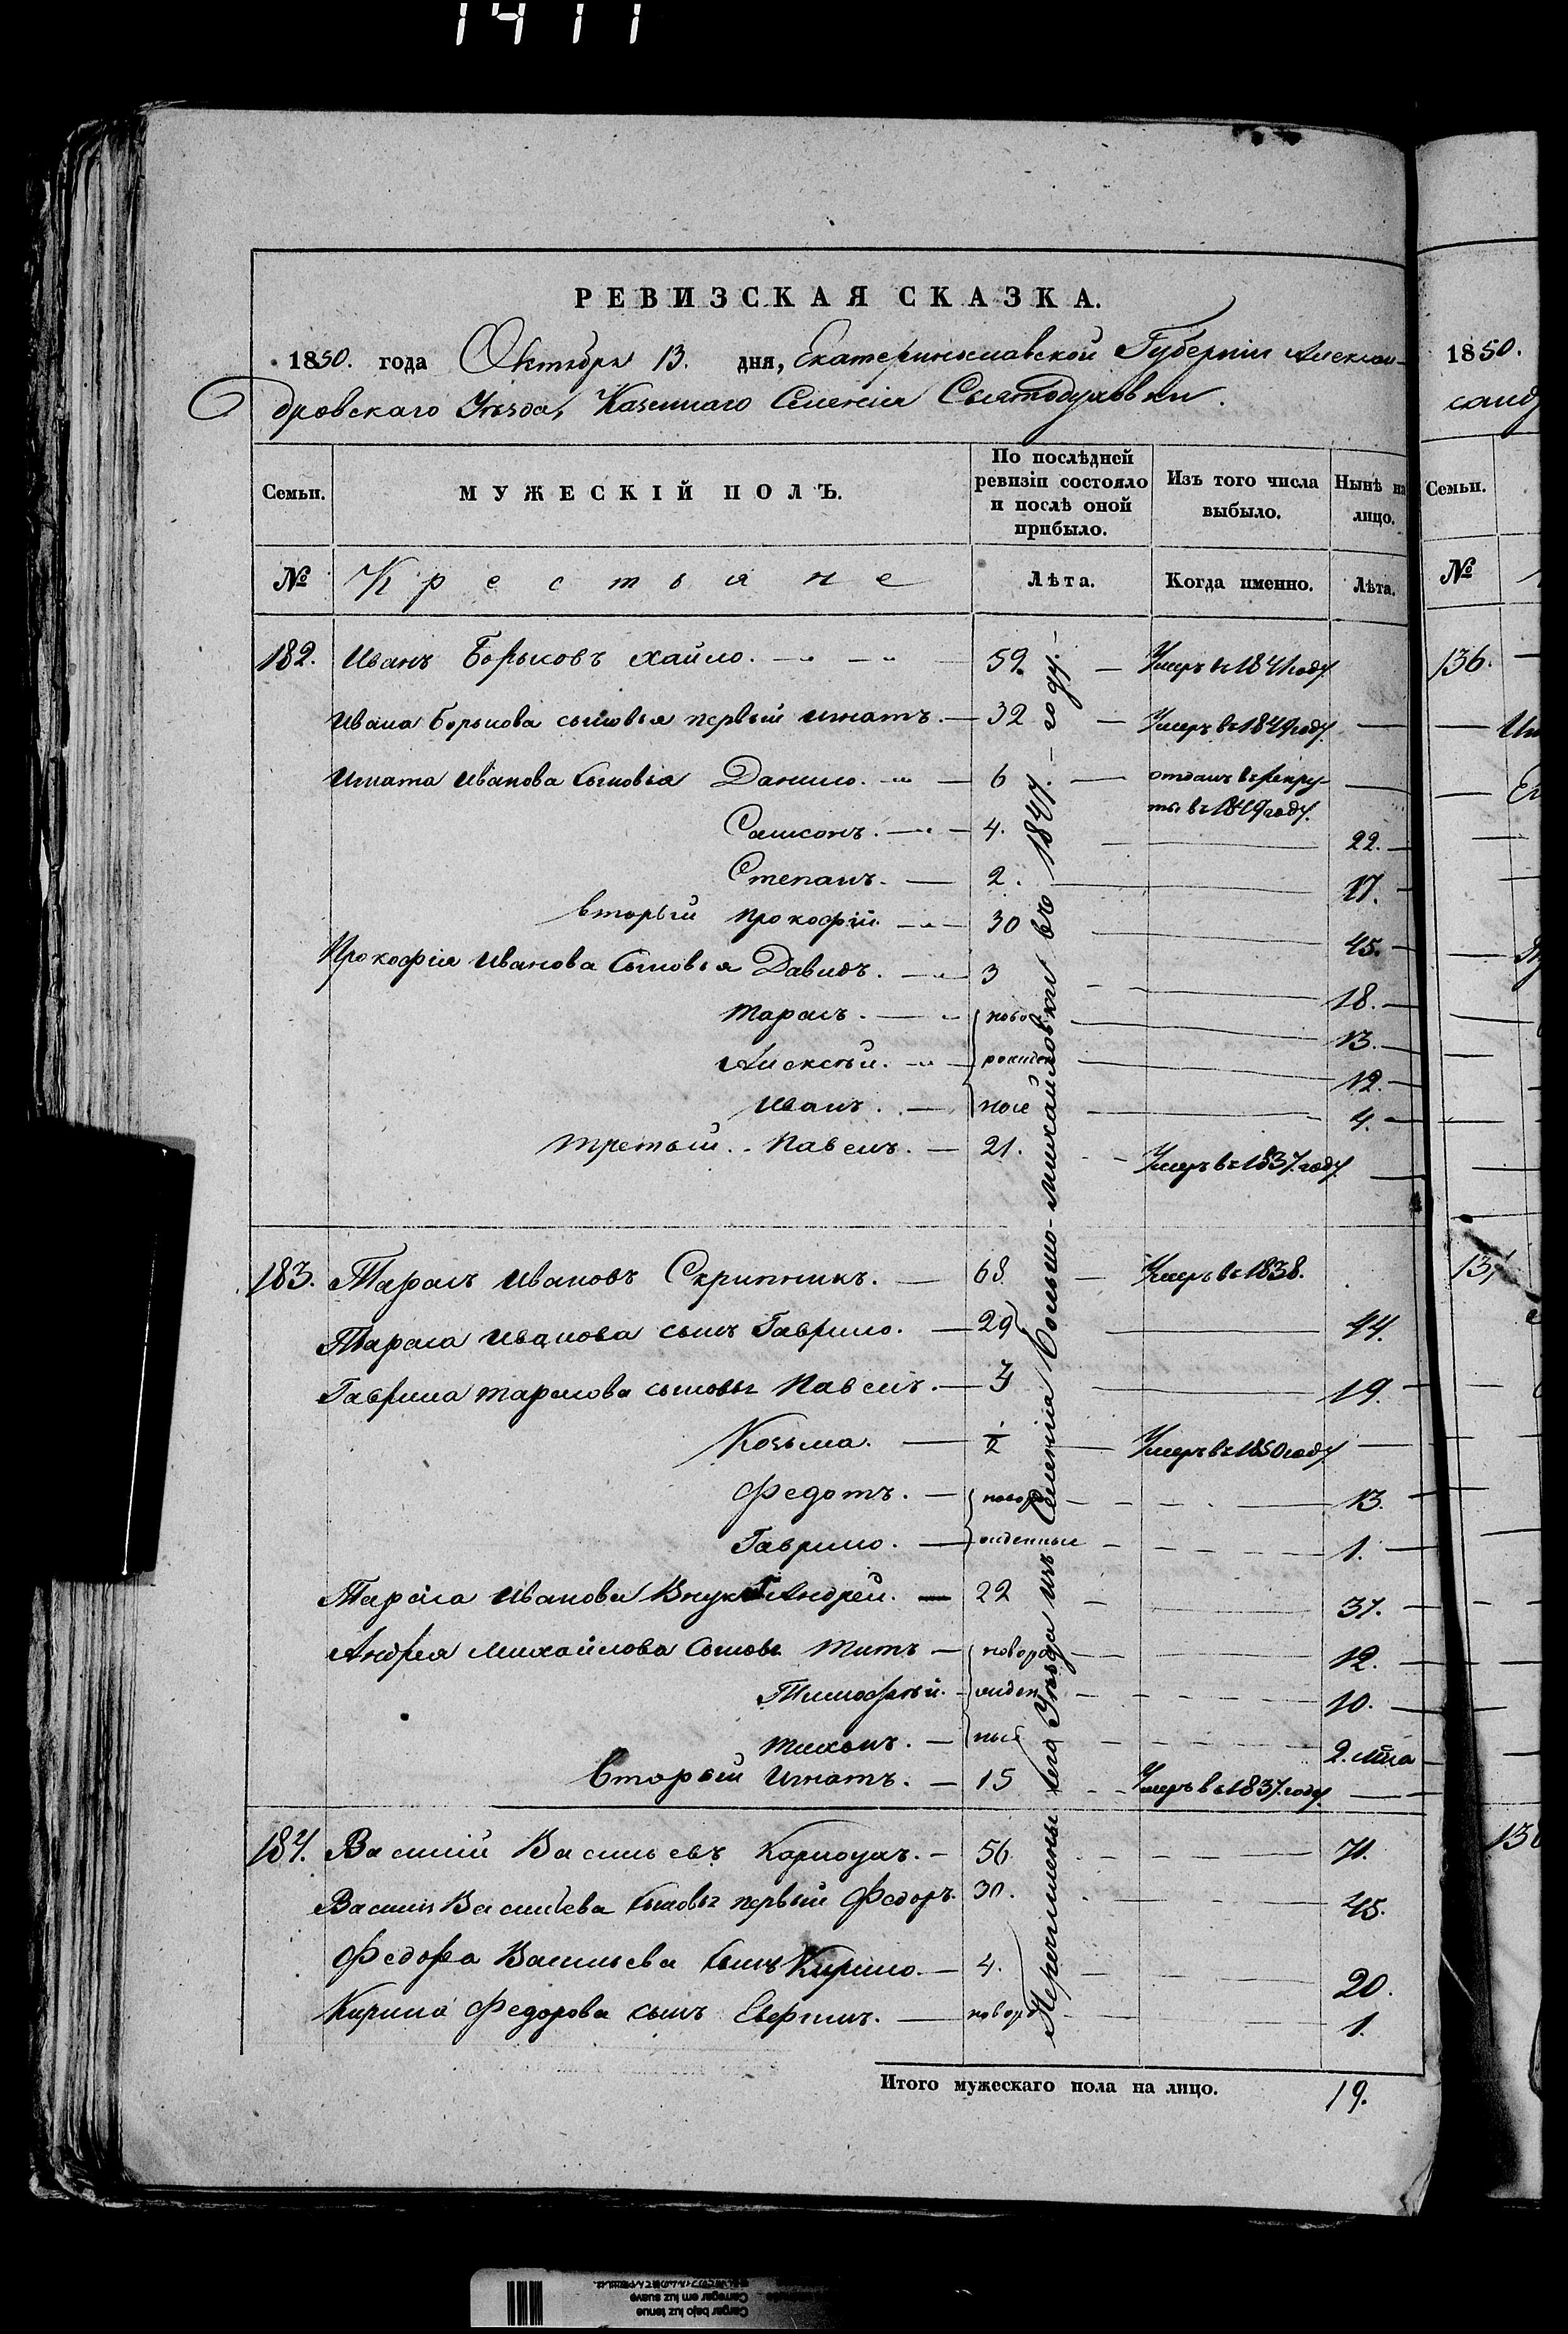 1411
РЕВИЗСКАЯ СКАЗКА.
1850. года Октября 13. дня, Екатеринославской Губернiи Алексан-
дровскаго Уѣзда, Казеннаго Селенiя Святодуховки.
Семьи.
МУЖЕСКIЙ ПОЛЪ.
По послѣдней ревизiи состояло и послѣ оной прибыло.
Изъ того числа выбыло.
Нынѣ на лицо.
№ Крестьяне Лѣта. Когда именно. Лѣта.
182. Иванъ Борисовъ Хайло. 59. Умеръ въ 1841 году.
Ивана Борисова сыновья первый Игнатъ. 32 Умеръ въ 1849 году.
Игната Иванова Сыновья Данило. 6 отданъ въ рекру-
ты въ 1849 году.
Самсонъ. 4. 22.
Степанъ. 2. 17.
вторый Прокофiй. 30 45.
Прокофiя Иванова Сыновья Давидъ. 3 18.
Тарасъ. ново 13.
Алексѣй. рожден 12.
Иванъ. ные 4.
третьий Павелъ. 21. Умеръ въ 1837. году.
183. Тарасъ Ивановъ Скрипникъ. 68. Умеръ въ 1838.
Тараса Иванова сынъ Гаврило. 29 44.
Гаврила Тарасова сыновья Павелъ. 19.
Козьма. 1/2 Умеръ въ 1850 году
Федотъ. новоро 13.
Гаврило. жденные 1.
Тараса Иванова Внукъ Андрей. 22 37.
Андрея Михайлова Сыновья Титъ новоро 12.
Тимофѣй. жден 10.
Тихонъ. ные 2. мѣсяца
Вторый Игнатъ. 15 Умеръ въ 1837. году.
184. Василiй Васильевъ 56 71.
Василья Васильева Сыновья первый Федоръ. 30. 45.
Федора Васильева Сынъ Кирило. 4. 20.
Кирила Федорова сынъ новоро 1.
Перечислены сего Уѣзда изъ Селенiя Больше-Михайловки въ 1847. году.
Итого мужескаго пола на лицо. 19.
1850.
санд
Семьи.
№
136.
Cargar bajo luz tenue
Carregar em luz suave